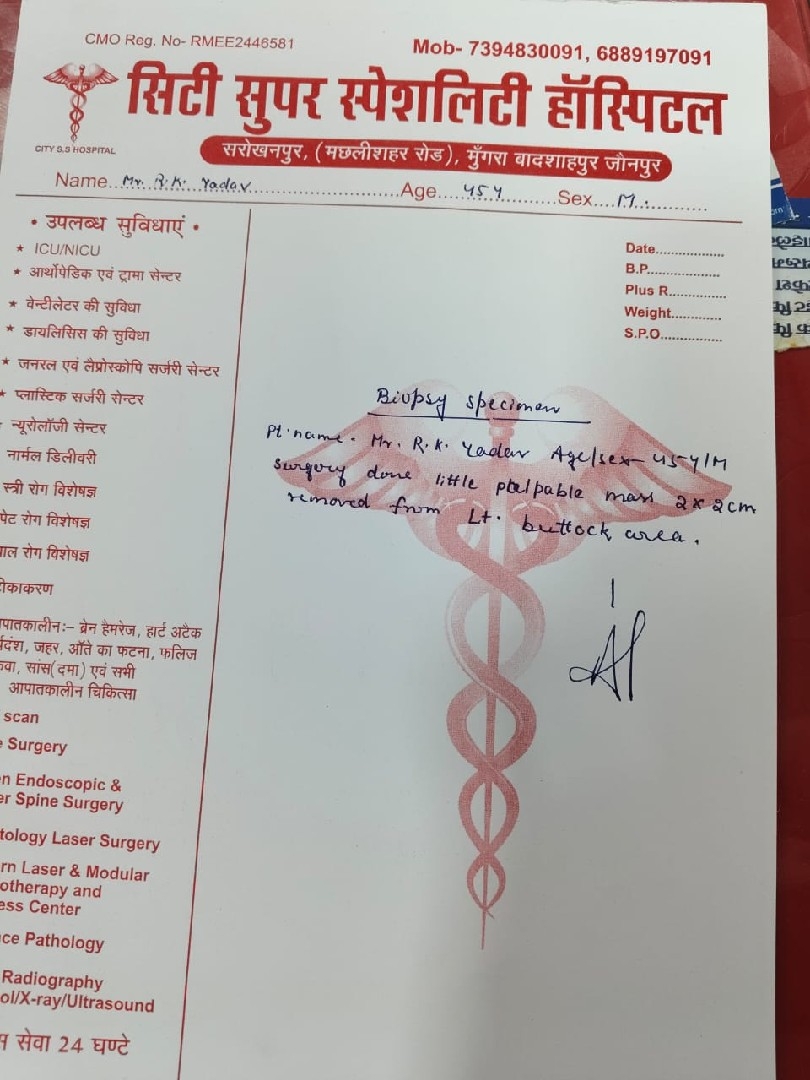 CMO Reg. No- RMEE2446581
Mob- 7394830091, 6889197091
सिटी सुपर स्पेशलिटी हॉस्पिटल
CITY S.S HOSPITAL
सरोखनपुर, (मछलीशहर रोड), मुँगरा बादशाहपुर जौनपुर
Name Mr. R.K. Yadav Age 45 y Sex M.
• उपलब्ध सुविधाएं •
★ ICU/NICU
★ आर्थोपेडिक एवं ट्रामा सेन्टर
★ वेन्टीलेटर की सुविधा
★ डायलिसिस की सुविधा
★ जनरल एवं लैप्रोस्कोपि सर्जरी सेन्टर
★ प्लास्टिक सर्जरी सेन्टर
न्यूरोलॉजी सेन्टर
नार्मल डिलीवरी
स्त्री रोग विशेषज्ञ
पेट रोग विशेषज्ञ
रोग विशेषज्ञ
टीकाकरण
आपातकालीनः- ब्रेन हैमरेज, हार्ट अटैक
जहर, आँते का फटना, फलिज
सांस(दमा) एवं सभी
आपातकालीन चिकित्सा
scan
Surgery
Endoscopic &
Spine Surgery
Laser Surgery
Laser & Modular
and
Center
Pathology
Radiography
X-ray/Ultrasound
सेवा 24 घण्टे
Date
B.P.
Plus R.
Weight
S.P.O.
Biopsy specimen
Pt. name. Mr. R.K. Yadav Age/sex- 45y/M
surgery done little palpable mass 2x2cm
removed from Lt. buttock area.